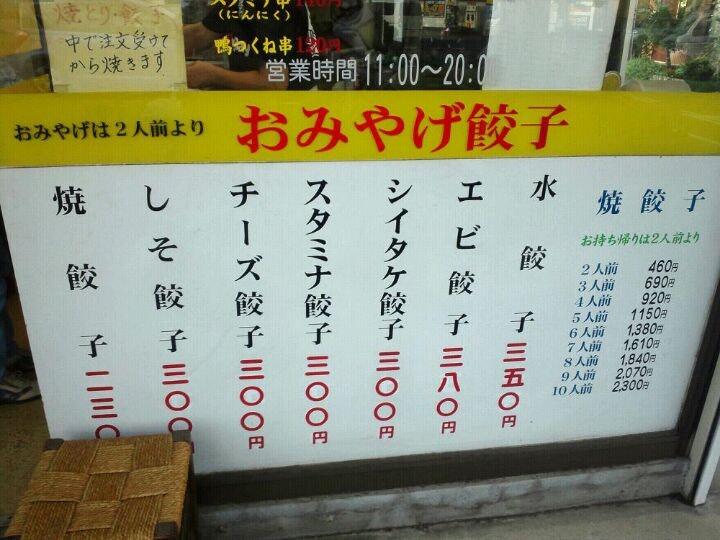 焼とり・餃子
中で注文受けて
から焼きます
スタミナ串
(にんにく)
鴨つくね串
営業時間 11:00～20:0
おみやげは2人前より
おみやげ餃子
水餃子 三五〇円
エビ餃子 三八〇円
シイタケ餃子 三〇〇円
スタミナ餃子 三〇〇円
チーズ餃子 三〇〇円
しそ餃子 三〇〇
焼餃子 二三〇
焼餃子
お持ち帰りは2人前より
2人前 460円
3人前 690円
4人前 920円
5人前 1150円
6人前 1,380円
7人前 1,610円
8人前 1,840円
9人前 2,070円
10人前 2,300円